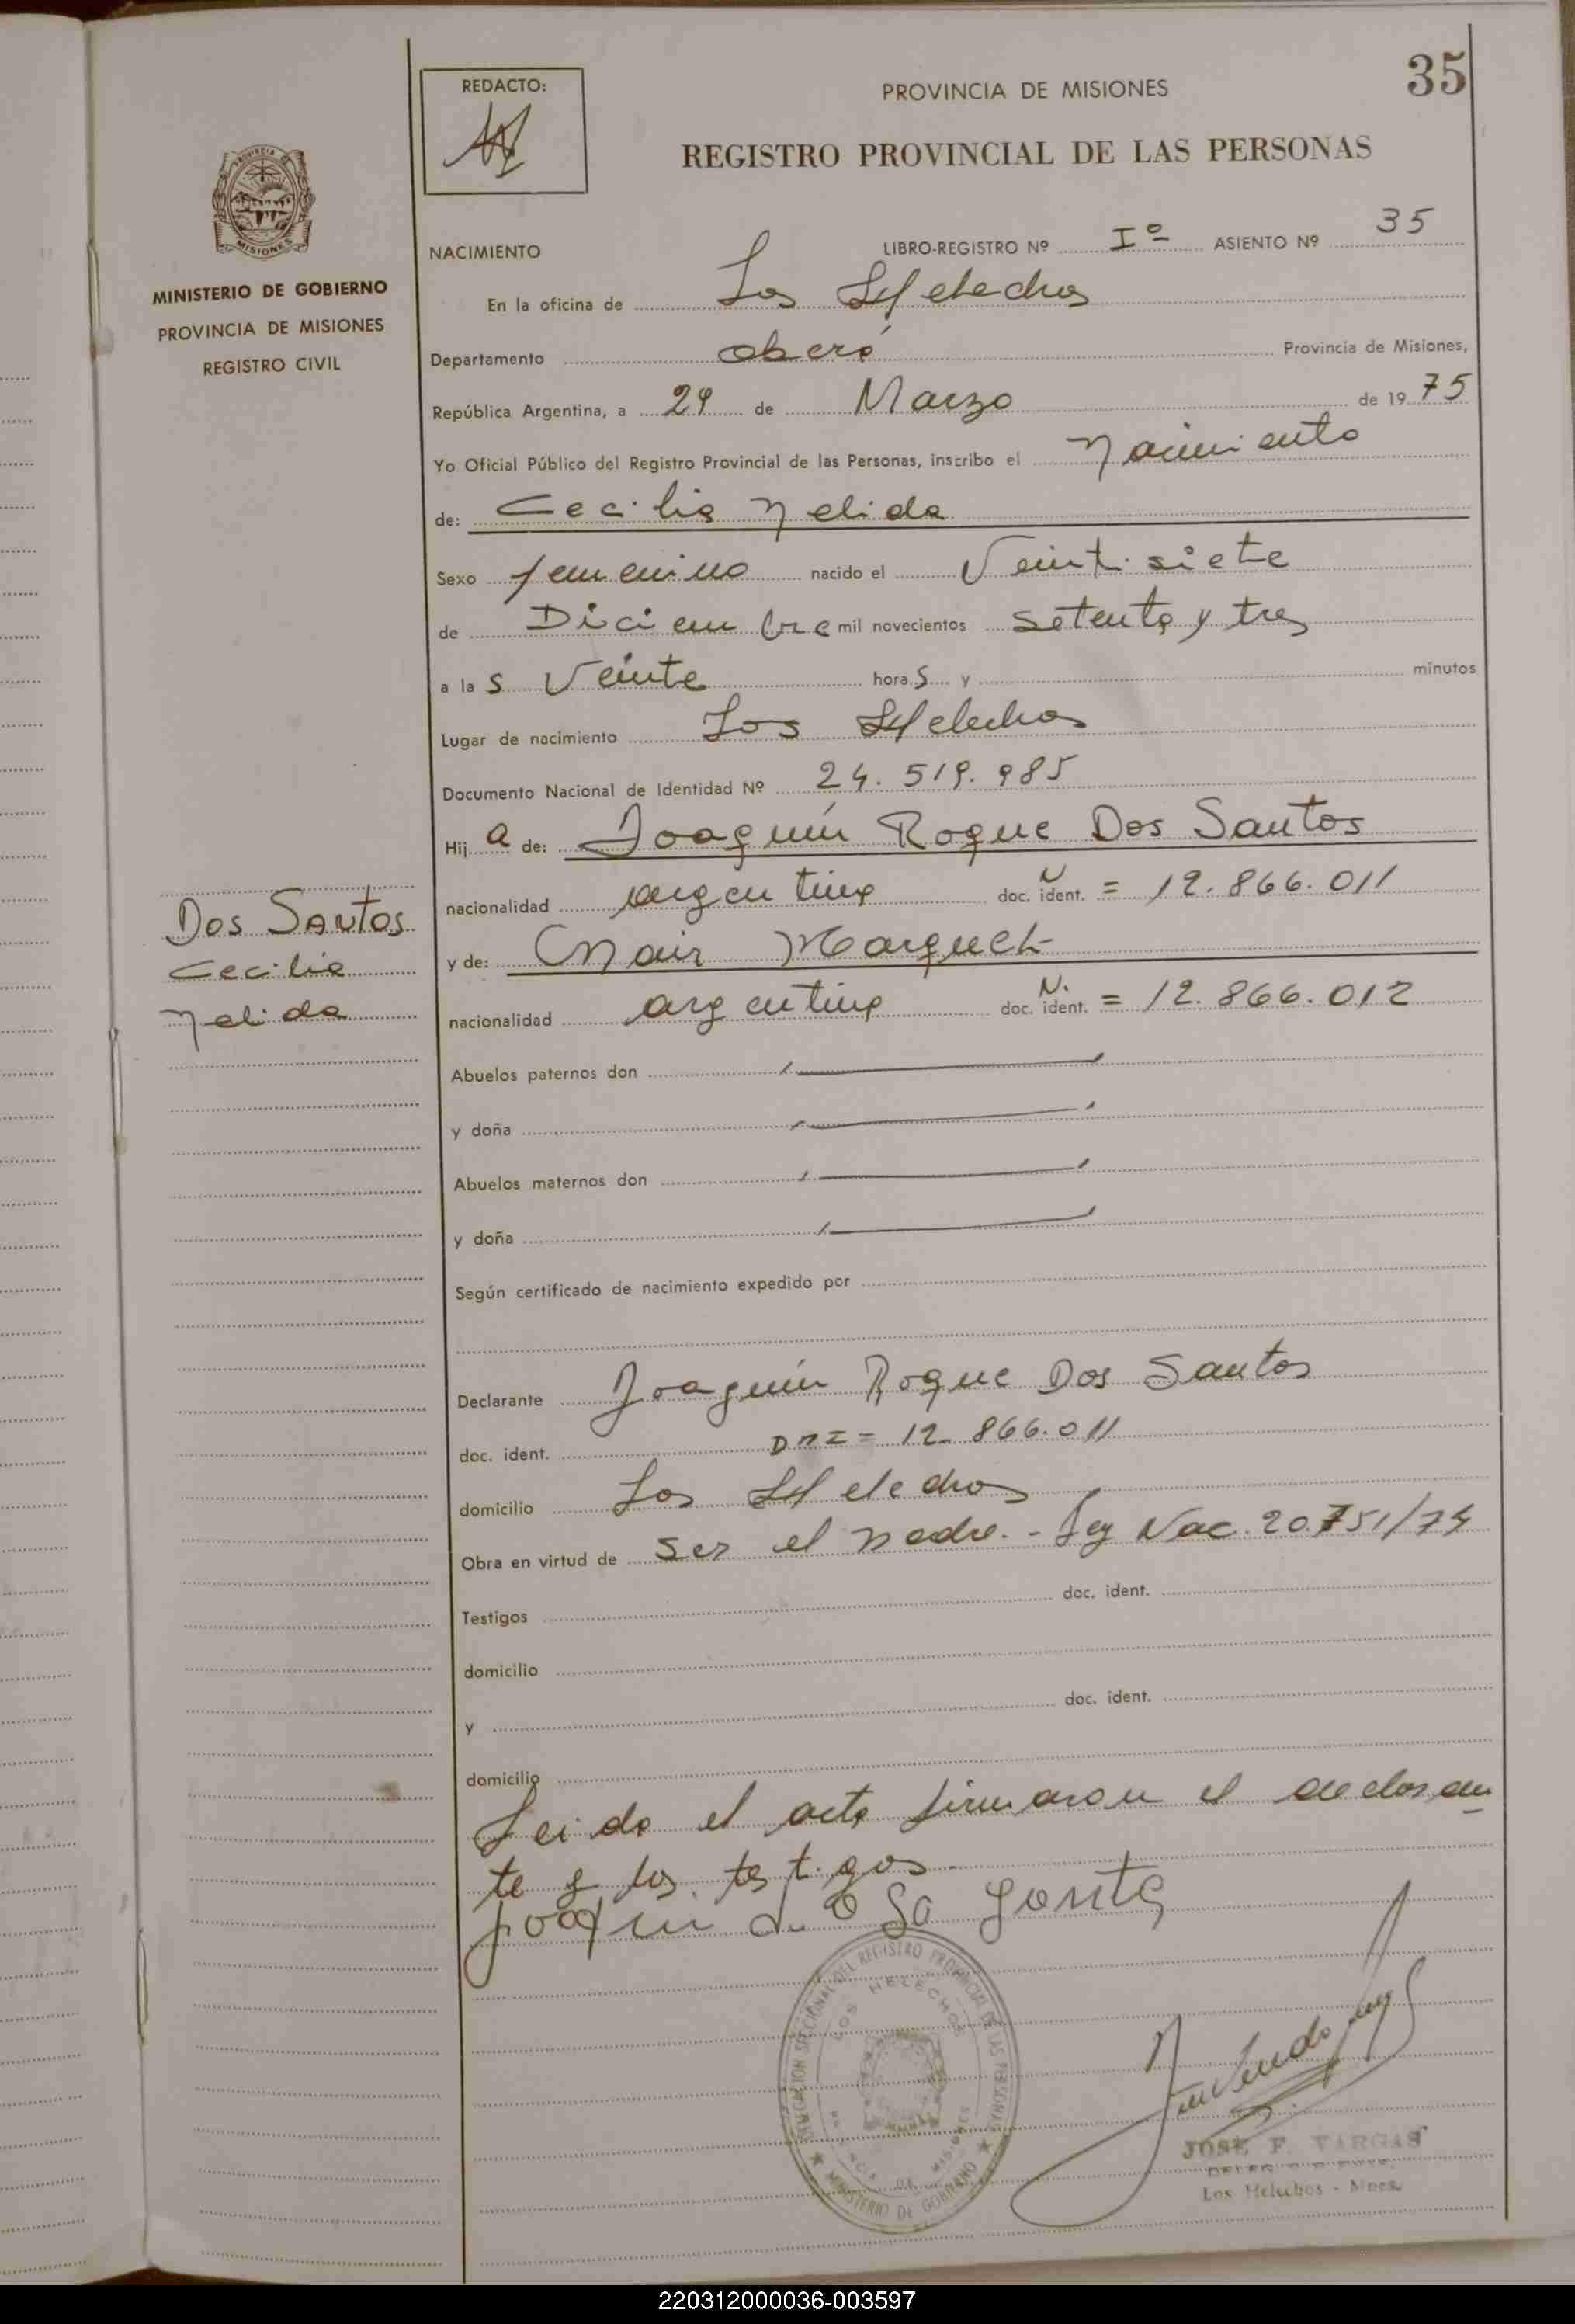 35
REDACTO:
PROVINCIA DE MISIONES
REGISTRO PROVINCIAL DE LAS PERSONAS
PROVINCIA DE
MISIONES
MINISTERIO DE GOBIERNO
PROVINCIA DE MISIONES
REGISTRO CIVIL
NACIMIENTO LIBRO-REGISTRO Nº Iº ASIENTO Nº 35
En la oficina de Los Helechos
Departamento Oberá Provincia de Misiones,
República Argentina, a 24 de Marzo de 1975
Yo Oficial Público del Registro Provincial de las Personas, inscribo el Nacimiento
de: Cecilia Nelida
Sexo femenino nacido el Veintisiete
de Diciembre mil novecientos setenta y tres
a las Veinte horas y minutos
Lugar de nacimiento Los Helechos
Documento Nacional de Identidad Nº 24.519.985
Hija de: Joaquín Roque Dos Santos
nacionalidad argentina doc. ident. N = 12.866.011
y de: Nair Marquez
nacionalidad argentina doc. ident. N. = 12.866.012
Dos Santos
Cecilia
Nelida
Abuelos paternos don
y doña
Abuelos maternos don
y doña
Según certificado de nacimiento expedido por
Declarante Joaquín Roque Dos Santos
doc. ident. DNI = 12.866.011
domicilio Los Helechos
Obra en virtud de ser el padre.- Ley Nac. 20.751/74
Testigos doc. ident.
domicilio
y doc. ident.
domicilio
Leida el acta firmaron el declaran
te y los testigos.
DELEGACION SECCIONAL DEL REGISTRO PROVINCIAL DE LAS PERSONAS
LOS HELECHOS
PROVINCIA DE MISIONES
MINISTERIO DE GOBIERNO
JOSE F. VARGAS
Los Helechos - Mnes.
220312000036-003597